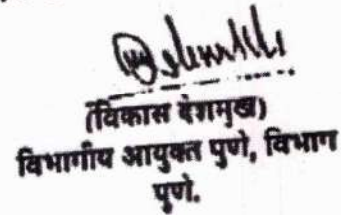 (विकास देशमुख)
विभागीय आयुक्त पुणे, विभाग
पुणे.